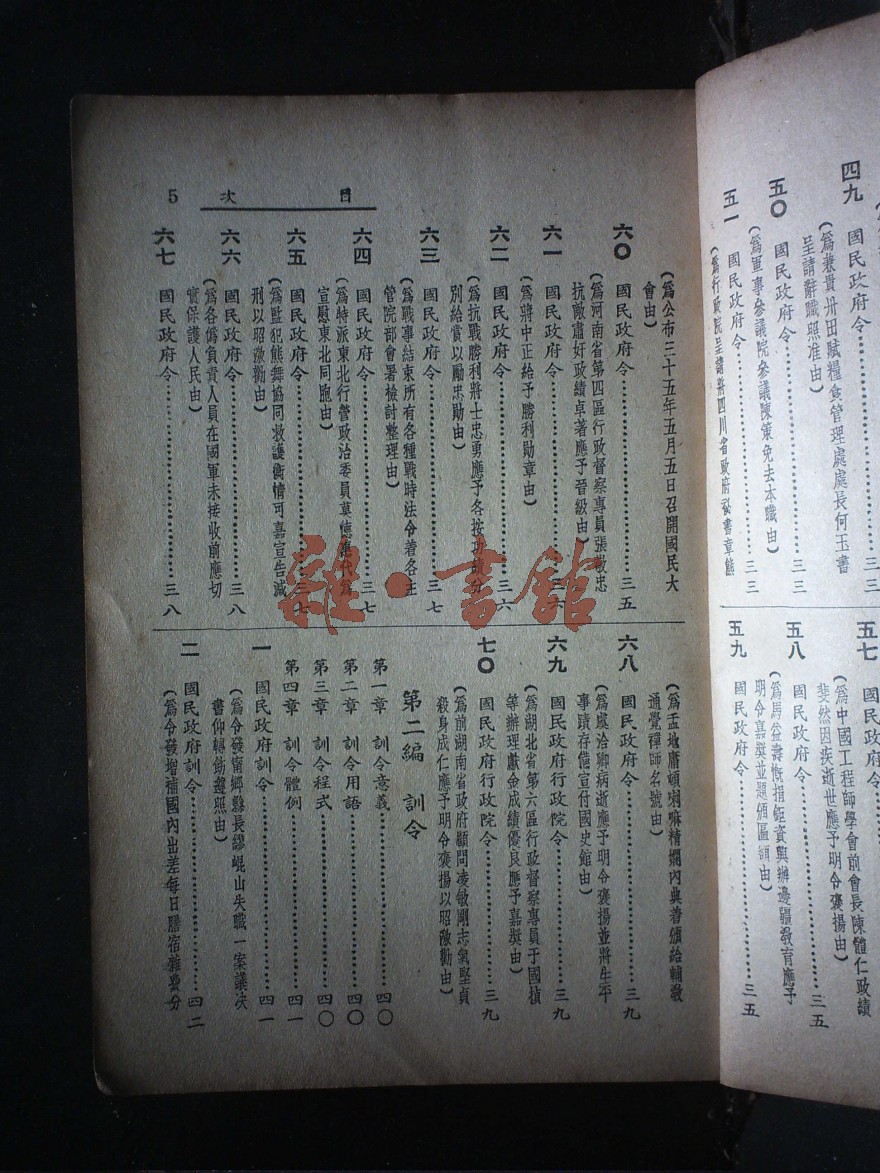 目次 5
(為公布三十五年五月五日召開國民大
會由)
六〇 國民政府令……三五
(為河南省第四區行政督察專員張敬忠
抗敵肅奸政績卓著應予晉級由)
六一 國民政府令……三六
(為蔣中正給予勝利勛章由)
六二 國民政府令……三六
(為抗戰勝利將士忠勇應予各按
別給賞以勵忠勛由)
六三 國民政府令……三七
(為戰事結束所有各種戰時法令着各主
管院部會署檢討整理由)
六四 國民政府令……三七
(為特派東北行營政治委員莫德
宣慰東北同胞由)
六五 國民政府令……三七
(為監犯熊舞協同救護衛情可嘉宣告減
刑以昭激勸由)
六六 國民政府令……三八
(為各偽負責人員在國軍未接收前應切
實保護人民由)
六七 國民政府令……三八
(為孟地庸頓喇嘛精嫻內典着頒給輔教
通覺禪師名號由)
六八 國民政府令……三九
(為虞洽卿病逝應予明令褒揚並將生平
事蹟存備宣付國史館由)
六九 國民政府行政院令……三九
(為湖北省第六區行政督察專員于國楨
等辦理獻金成績優良應予嘉獎由)
七〇 國民政府行政院令……三九
(為前湖南省政府顧問凌敏剛志氣堅貞
殺身成仁應予明令褒揚以昭激勸由)
第二編 訓令
第一章 訓令意義……四〇
第二章 訓令用語……四〇
第三章 訓令程式……四〇
第四章 訓令體例……四一
一 國民政府訓令……四一
(為令發甯鄉縣長謬崐山失職一案議决
書仰轉飭遵照由)
二 國民政府訓令……四二
(為令發增補國內出差每日膳宿雜費分
四九 國民政府令……三三
(為兼貴州田賦糧食管理處處長何玉書
呈請辭職照准由)
五〇 國民政府令……三三
(為軍事參議院參議陳策免去本職由)
五一 國民政府令……三三
(為行政院呈請將四川省政府祕書章熊
五七 國民政府令……三五
(為中國工程師學會前會長陳體仁政績
斐然因疾逝世應予明令褒揚由)
五八 國民政府令……三五
(為馬益壽慨捐鉅資興辦邊疆教育應予
明令嘉獎並題頒匾額由)
五九 國民政府令……三五
龍·書館